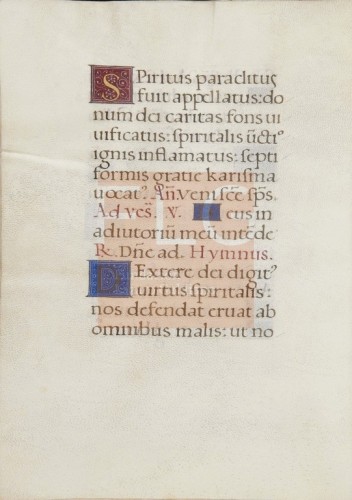 Spiritus paraclitus
fuit appellatus: do
num dei caritas fons ui
uificatus: spiritalis ūctiꝰ
ignis inflamatus: septi
formis gratie karisma
uocatꝰ. Añ. Veni sc̄e sp̄s.
Ad ves̄. V. Deus in
adiutoriū meū intēde
R. Dñe ad. Hymnus.
Dextere dei digitꝰ
uirtus spiritalis:
nos defendat eruat ab
omnibus malis: ut no
FLC